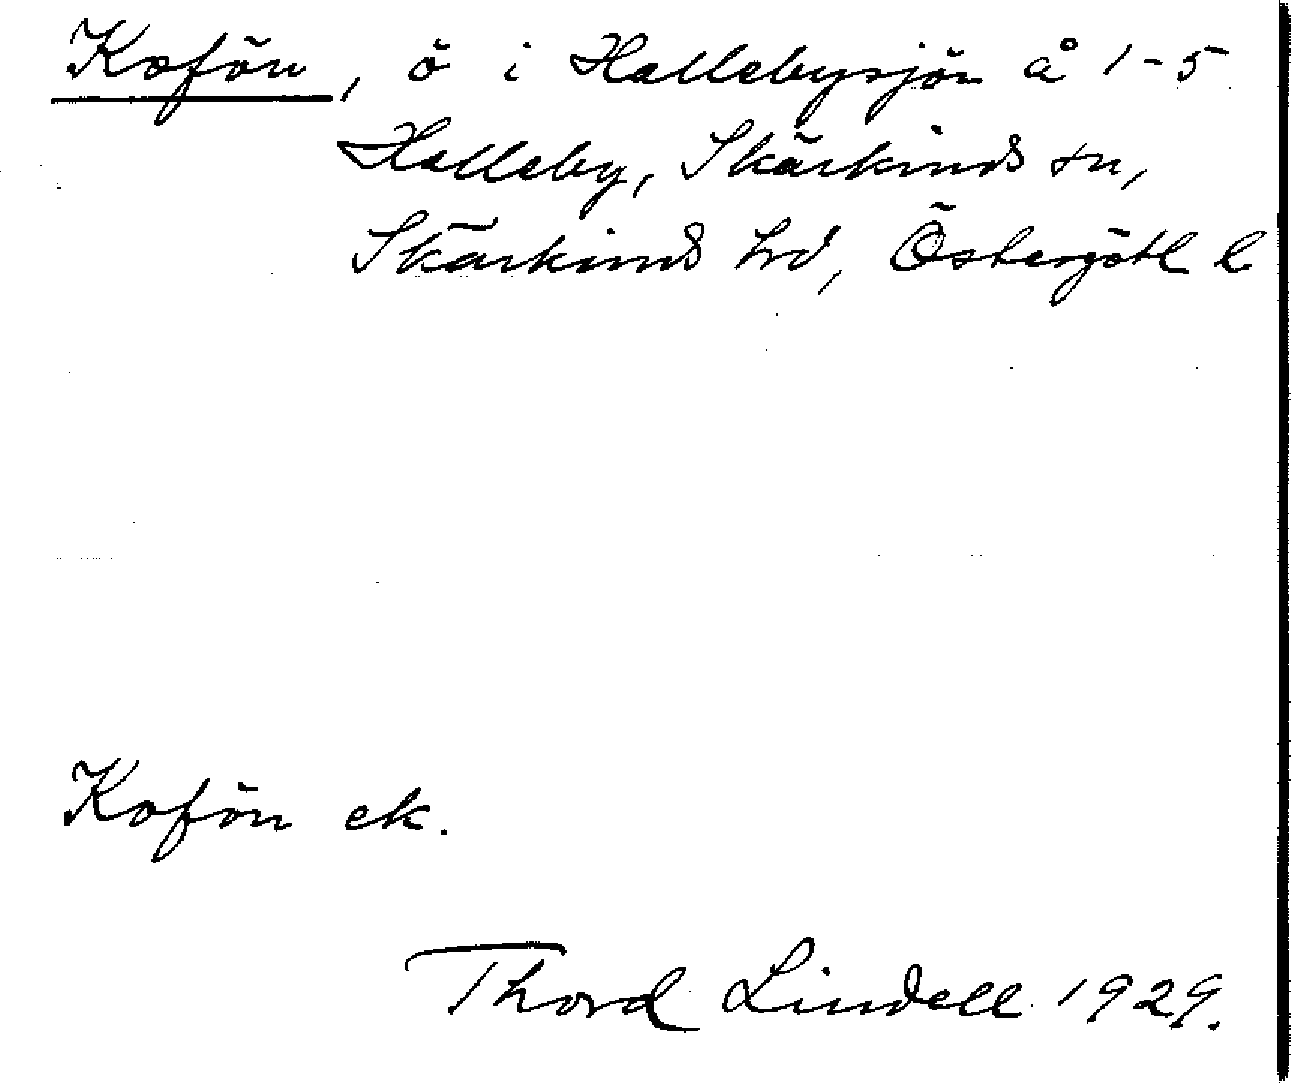 Kofön, ö i Hallebysjön å 1-5
Halleby, Skärkinds sn,
Skärkinds hd, Östergötl l
Kofön ek.
Thord Lindell 1929.